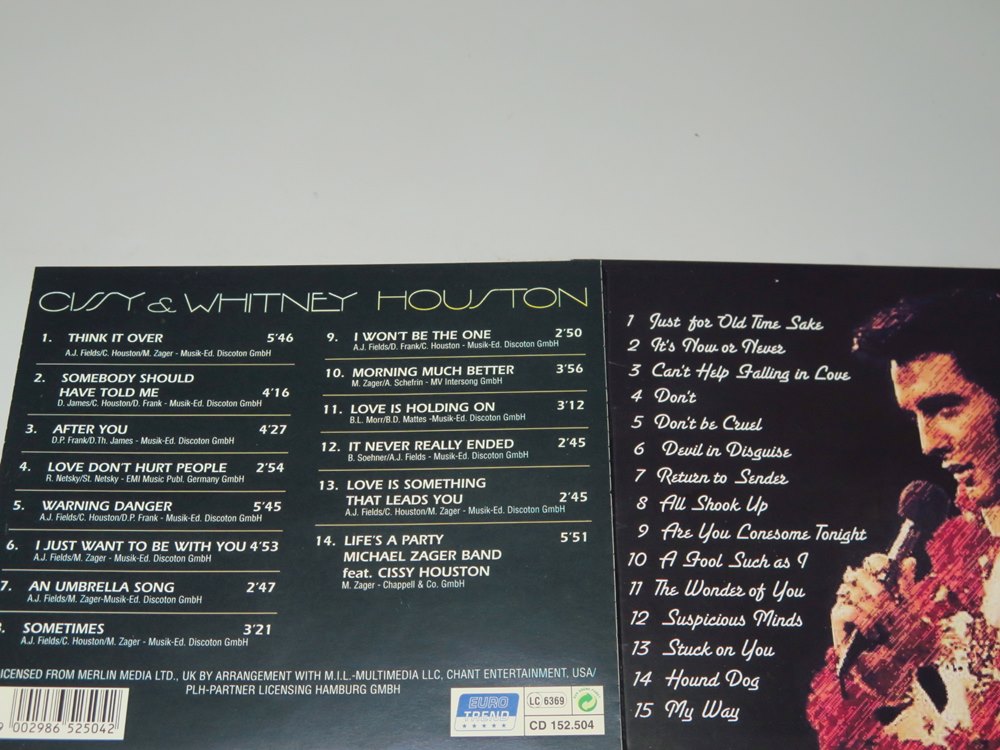 CISSY & WHITNEY HOUSTON
1. THINK IT OVER 5'46
A.J. Fields/C. Houston/M. Zager - Musik-Ed. Discoton GmbH
2. SOMEBODY SHOULD
HAVE TOLD ME 4'16
D. James/C. Houston/D. Frank - Musik-Ed. Discoton GmbH
3. AFTER YOU 4'27
D.P. Frank/D.Th. James - Musik-Ed. Discoton GmbH
4. LOVE DON'T HURT PEOPLE 2'54
R. Netsky/St. Netsky - EMI Music Publ. Germany GmbH
5. WARNING DANGER 5'45
A.J. Fields/C. Houston/D.P. Frank - Musik-Ed. Discoton GmbH
6. I JUST WANT TO BE WITH YOU 4'53
A.J. Fields/M. Zager - Musik-Ed. Discoton GmbH
7. AN UMBRELLA SONG 2'47
A.J. Fields/M. Zager-Musik-Ed. Discoton GmbH
SOMETIMES 3'21
A.J. Fields/C. Houston/M. Zager - Musik-Ed. Discoton GmbH
9. I WON'T BE THE ONE 2'50
A.J. Fields/D. Frank/C. Houston - Musik-Ed. Discoton GmbH
10. MORNING MUCH BETTER 3'56
M. Zager/A. Schefrin - MV Intersong GmbH
11. LOVE IS HOLDING ON 3'12
B.L. Morr/B.D. Mattes -Musik-Ed. Discoton GmbH
12. IT NEVER REALLY ENDED 2'45
B. Soehner/A.J. Fields - Musik-Ed. Discoton GmbH
13. LOVE IS SOMETHING
THAT LEADS YOU 2'45
A.J. Fields/C. Houston/M. Zager - Musik-Ed. Discoton GmbH
14. LIFE'S A PARTY 5'51
MICHAEL ZAGER BAND
feat. CISSY HOUSTON
M. Zager - Chappell & Co. GmbH
LICENSED FROM MERLIN MEDIA LTD., UK BY ARRANGEMENT WITH M.I.L.-MULTIMEDIA LLC, CHANT ENTERTAINMENT. USA/
PLH-PARTNER LICENSING HAMBURG GMBH
9 002986 525042
EURO
TREND
LC 6369
CD 152.504
1 Just for Old Time Sake
2 It's Now or Never
3 Can't Help Falling in Love
4 Don't
5 Don't be Cruel
6 Devil in Disguise
7 Return to Sender
8 All Shook Up
9 Are You Lonesome Tonight
10 A Fool Such as I
11 The Wonder of You
12 Suspicious Minds
13 Stuck on You
14 Hound Dog
15 My Way